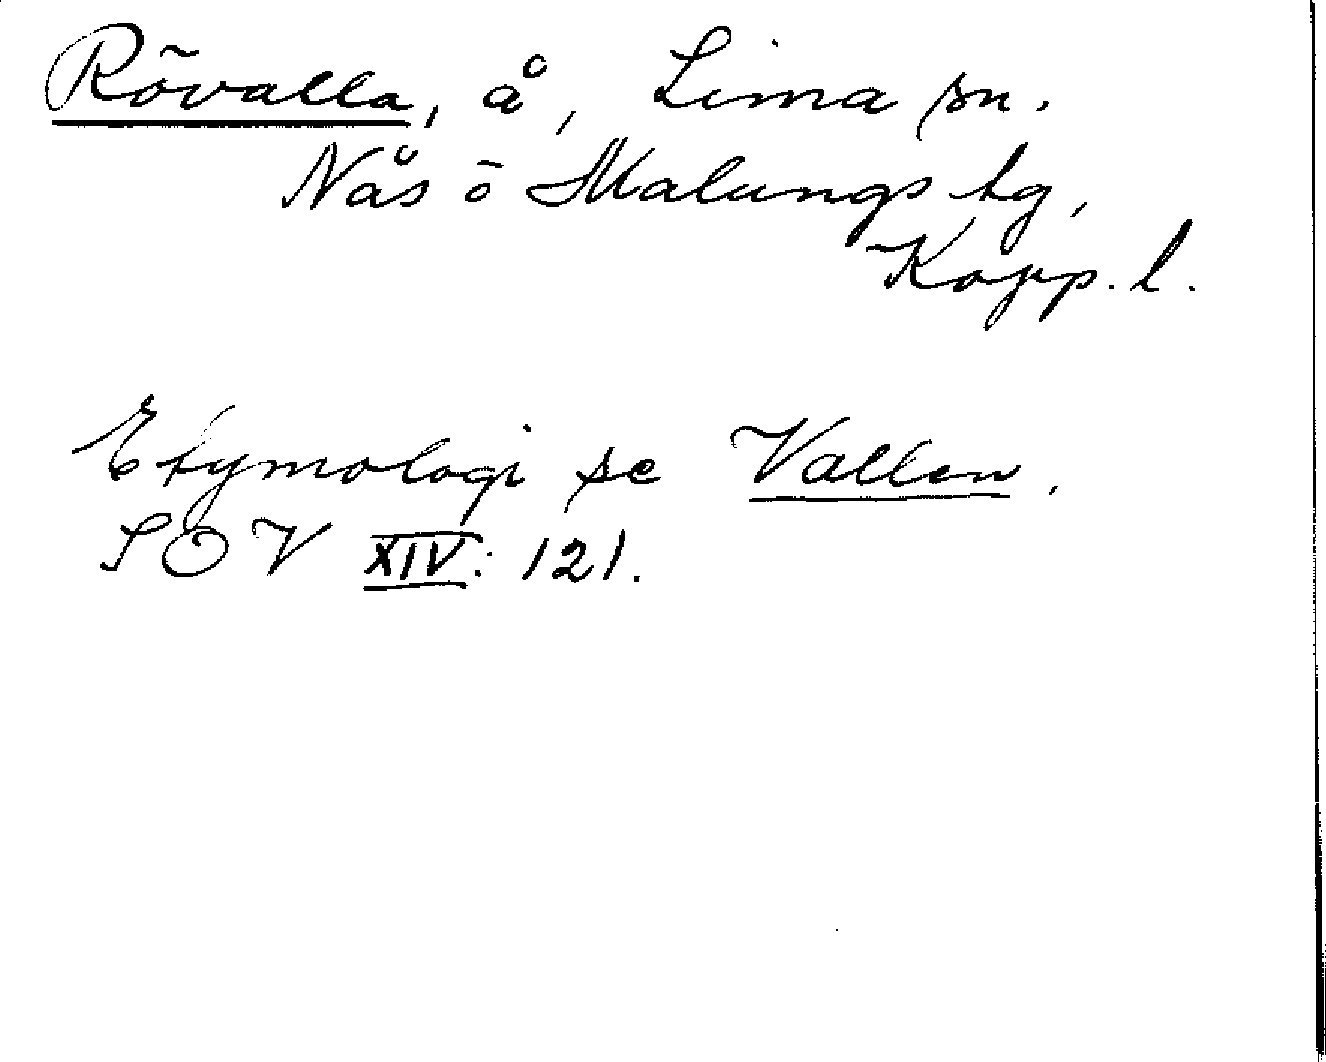 Rövalla, å, Lima sn.
Nås ö Malungs tg,
Kopp. l.
Etymologi se Vallen.
SOV XIV: 121.